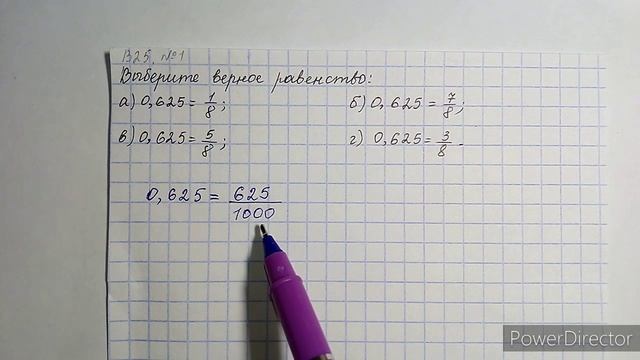 В25. №1
Выберите верное равенство:
а) 0,625 = 1/8; б) 0,625 = 7/8;
в) 0,625 = 5/8; г) 0,625 = 3/8.
0,625 = 625/1000
PowerDirector